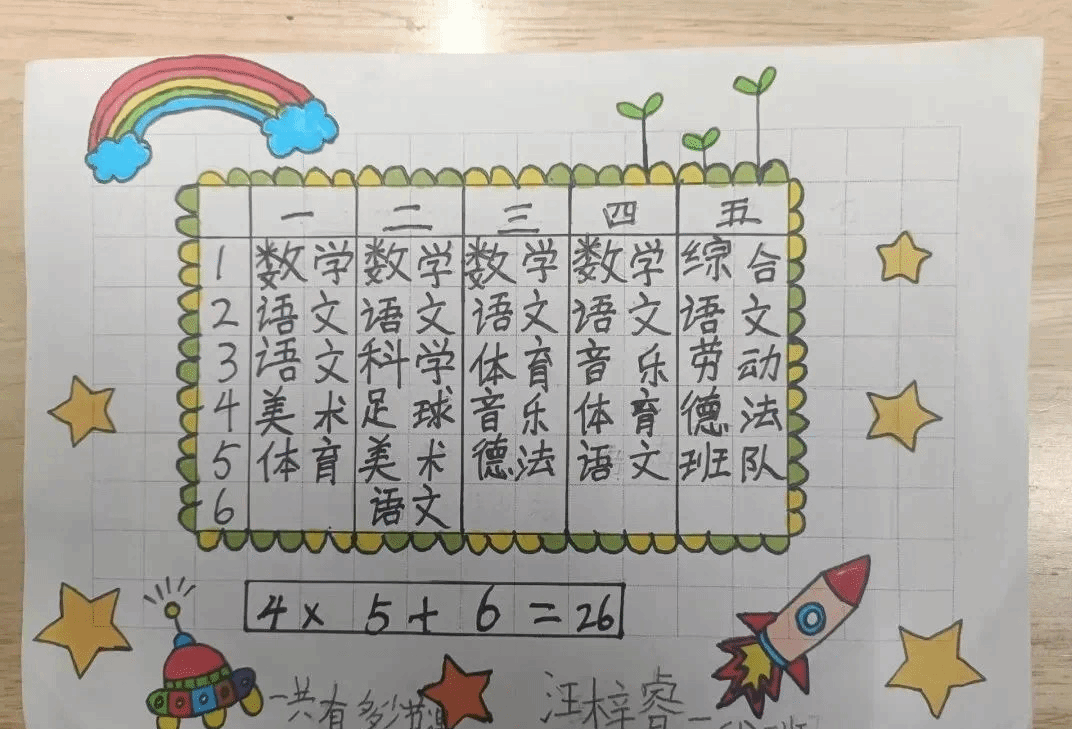 一 二 三 四 五
1 数学 数学 数学 数学 综合
2 语文 语文 语文 语文 语文
3 语文 科学 体育 音乐 劳动
4 美术 足球 音乐 体育 德法
5 体育 美术 德法 语文 班队
6 语文
4 × 5 + 6 = 26
一共有多少节 汪梓睿